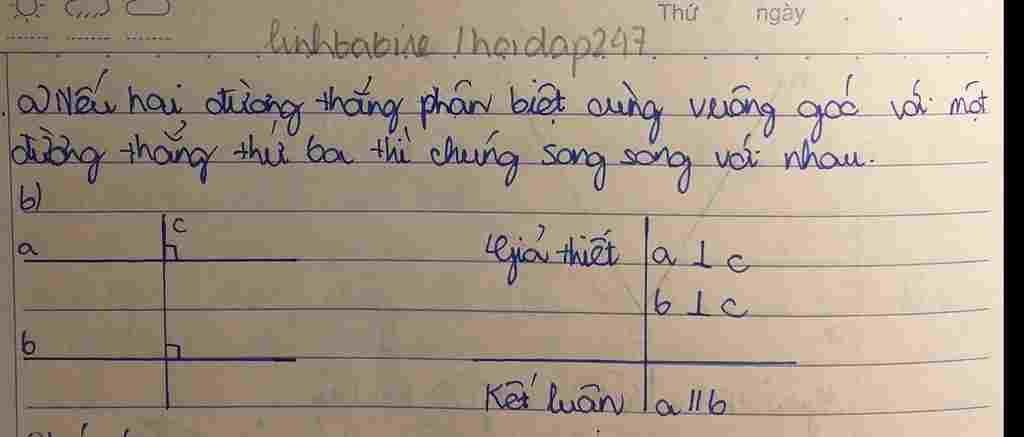 Thứ ngày
linhbabine / hoidap247
a) Nếu hai đường thẳng phân biệt cùng vuông góc với một
đường thẳng thứ ba thì chúng song song với nhau.
b)
c
a
Giả thiết a ⊥ c
b ⊥ c
b
Kết luân a // b